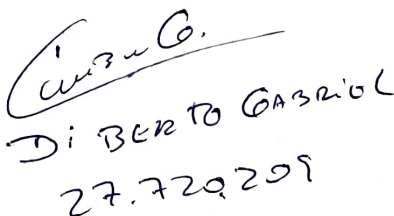 DI BERTO GABRIEL
27.720.209